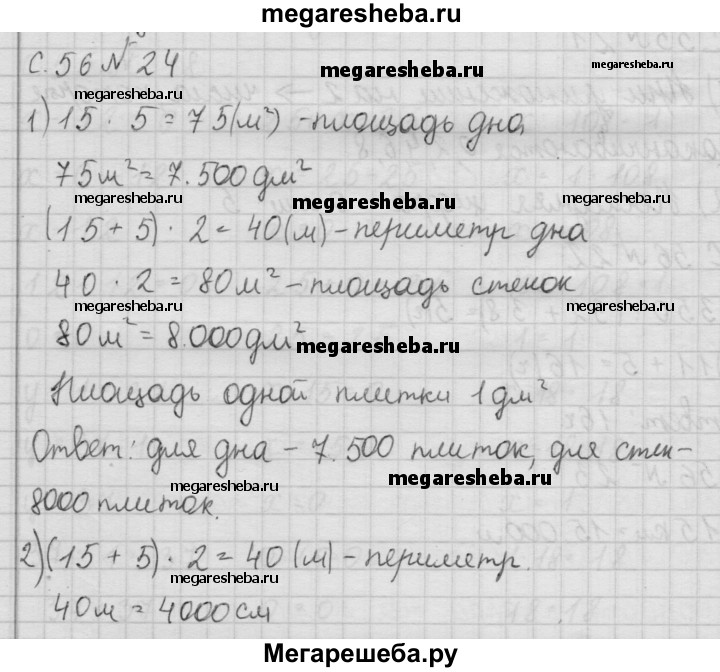 megaresheba.ru
с. 56 № 24
megaresheba.ru
megaresheba.ru
1) 15 · 5 = 75 (м²) - площадь дна
75 м² = 7.500 дм²
megaresheba.ru
megaresheba.ru
(15 + 5) · 2 = 40 (м) - периметр дна
40 · 2 = 80 м² - площадь стенок
megaresheba.ru
megaresheba.ru
80 м² = 8.000 дм²
megaresheba.ru
Площадь одной плитки 1 дм²
Ответ: для дна - 7.500 плиток, для стен-
megaresheba.ru
megaresheba.ru
8000 плиток.
2) (15 + 5) · 2 = 40 (м) - периметр.
megaresheba.ru
megaresheba.ru
40 м = 4000 см
Мегарешеба.ру